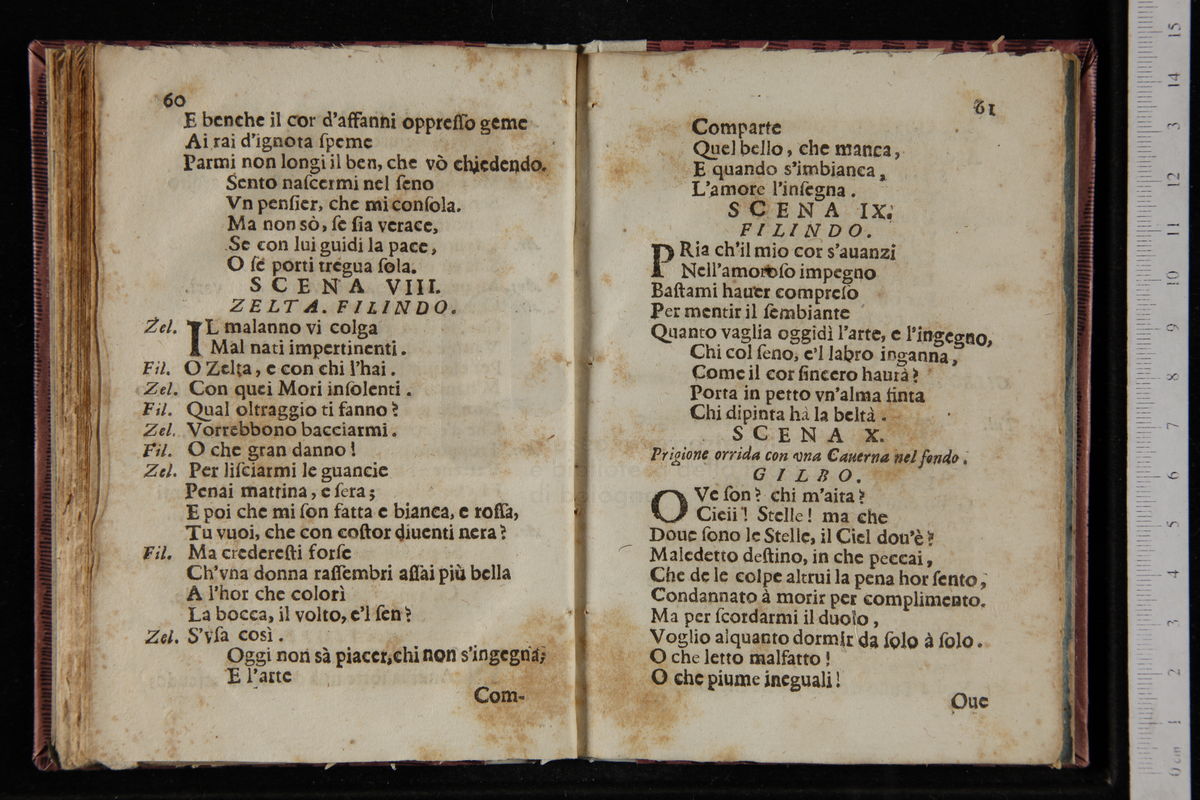 60
E benche il cor d'affanni oppreſſo geme
Ai rai d'ignota ſpeme
Parmi non longi il ben, che vò chiedendo.
Sento naſcermi nel ſeno
Vn penſier, che mi conſola.
Ma non sò, ſe ſia verace,
Se con lui guidi la pace,
O ſe porti tregua ſola.
SCENA VIII.
ZELTA. FILINDO.
Zel. IL malanno vi colga
Mal nati impertinenti.
Fil. O Zelta, e con chi l'hai.
Zel. Con quei Mori inſolenti.
Fil. Qual oltraggio ti fanno?
Zel. Vorrebbono bacciarmi.
Fil. O che gran danno!
Zel. Per liſciarmi le guancie
Penai mattina, e ſera;
E poi che mi ſon fatta e bianca, e roſſa,
Tu vuoi, che con coſtor diuenti nera?
Fil. Ma credereſti forſe
Ch'vna donna raſſembri aſſai più bella
A l'hor che colorì
La bocca, il volto, e'l ſen?
Zel. S'vſa così.
Oggi non sà piacer, chi non s'ingegna;
E l'arte
Com-
61
Comparte
Quel bello, che manca,
E quando s'imbianca,
L'amore l'inſegna.
SCENA IX.
FILINDO.
PRia ch'il mio cor s'auanzi
Nell'amoroſo impegno
Baſtami hauer compreſo
Per mentir il ſembiante
Quanto vaglia oggidì l'arte, e l'ingegno,
Chi col ſeno, e'l labro inganna,
Come il cor ſincero haurà?
Porta in petto vn'alma finta
Chi dipinta hà la beltà.
SCENA X.
Prigione orrida con vna Cauerna nel fondo.
GILBO.
OVe ſon? chi m'aita?
Cieli! Stelle! ma che
Doue ſono le Stelle, il Ciel dou'è?
Maledetto deſtino, in che peccai,
Che de le colpe altrui la pena hor ſento,
Condannato à morir per complimento.
Ma per ſcordarmi il duolo,
Voglio alquanto dormir da ſolo à ſolo.
O che letto malfatto!
O che piume ineguali!
Oue
0 cm 1 2 3 4 5 6 7 8 9 10 11 12 13 14 15